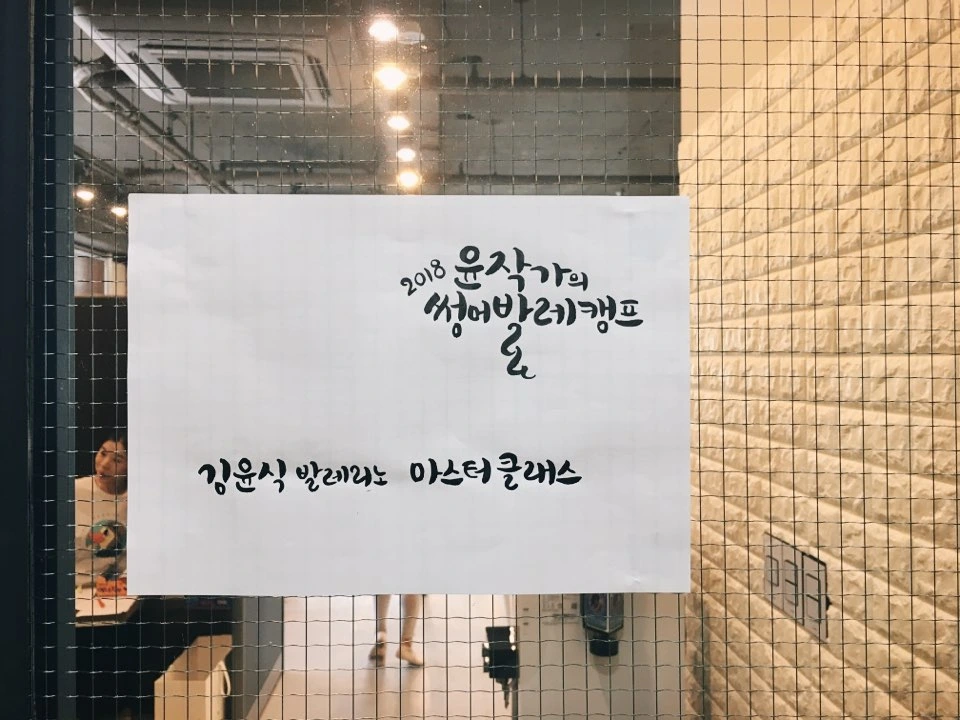 2018 윤작가의
썸머발레캠프
김윤식 발레리노 마스터클래스